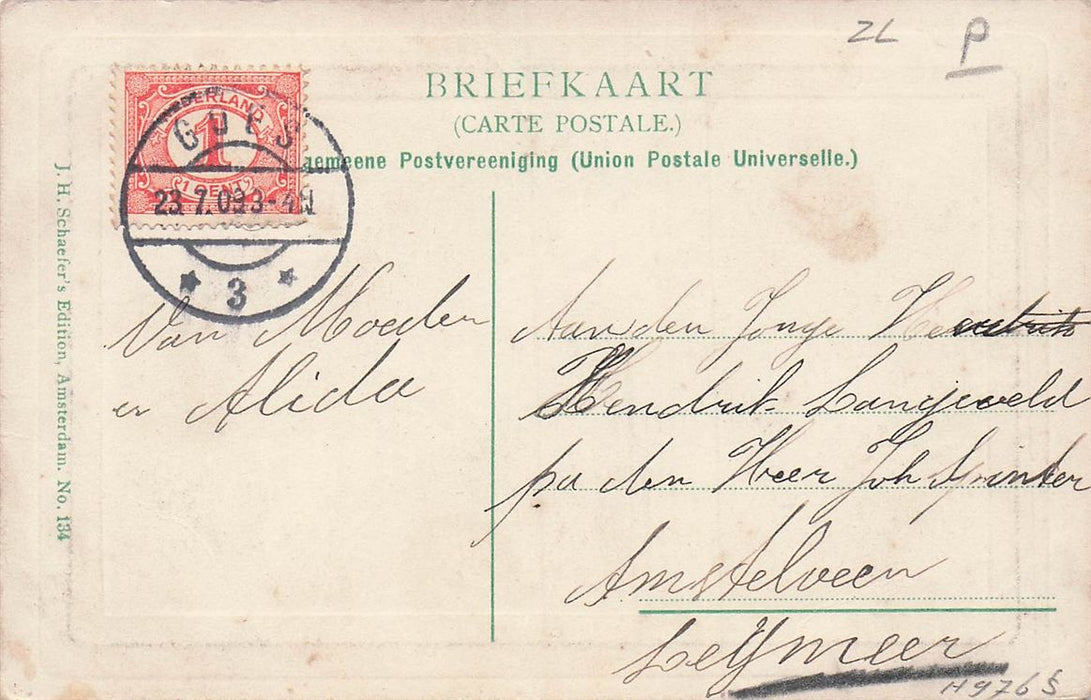 ZL P
BRIEFKAART
(CARTE POSTALE.)
gemeene Postvereeniging (Union Postale Universelle.)
NEDERLAND
1
1 CENT
GOES
23.7.09 3-4N
3
J. H. Schaefer's Edition, Amsterdam. No. 134
Van Moeder
en Alida
Aan den Jonge Heer
Hendrik Langeveld
pa den Heer Joh Spinter
Amstelveen
Leijmeer
H976